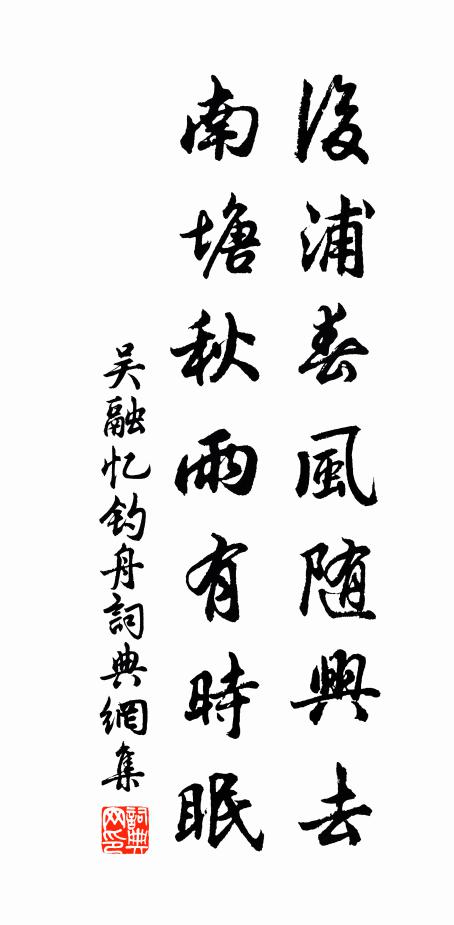 後浦春風随興去
南塘秋雨有時眠
吴融忆钓舟詞典網集
詞典網印